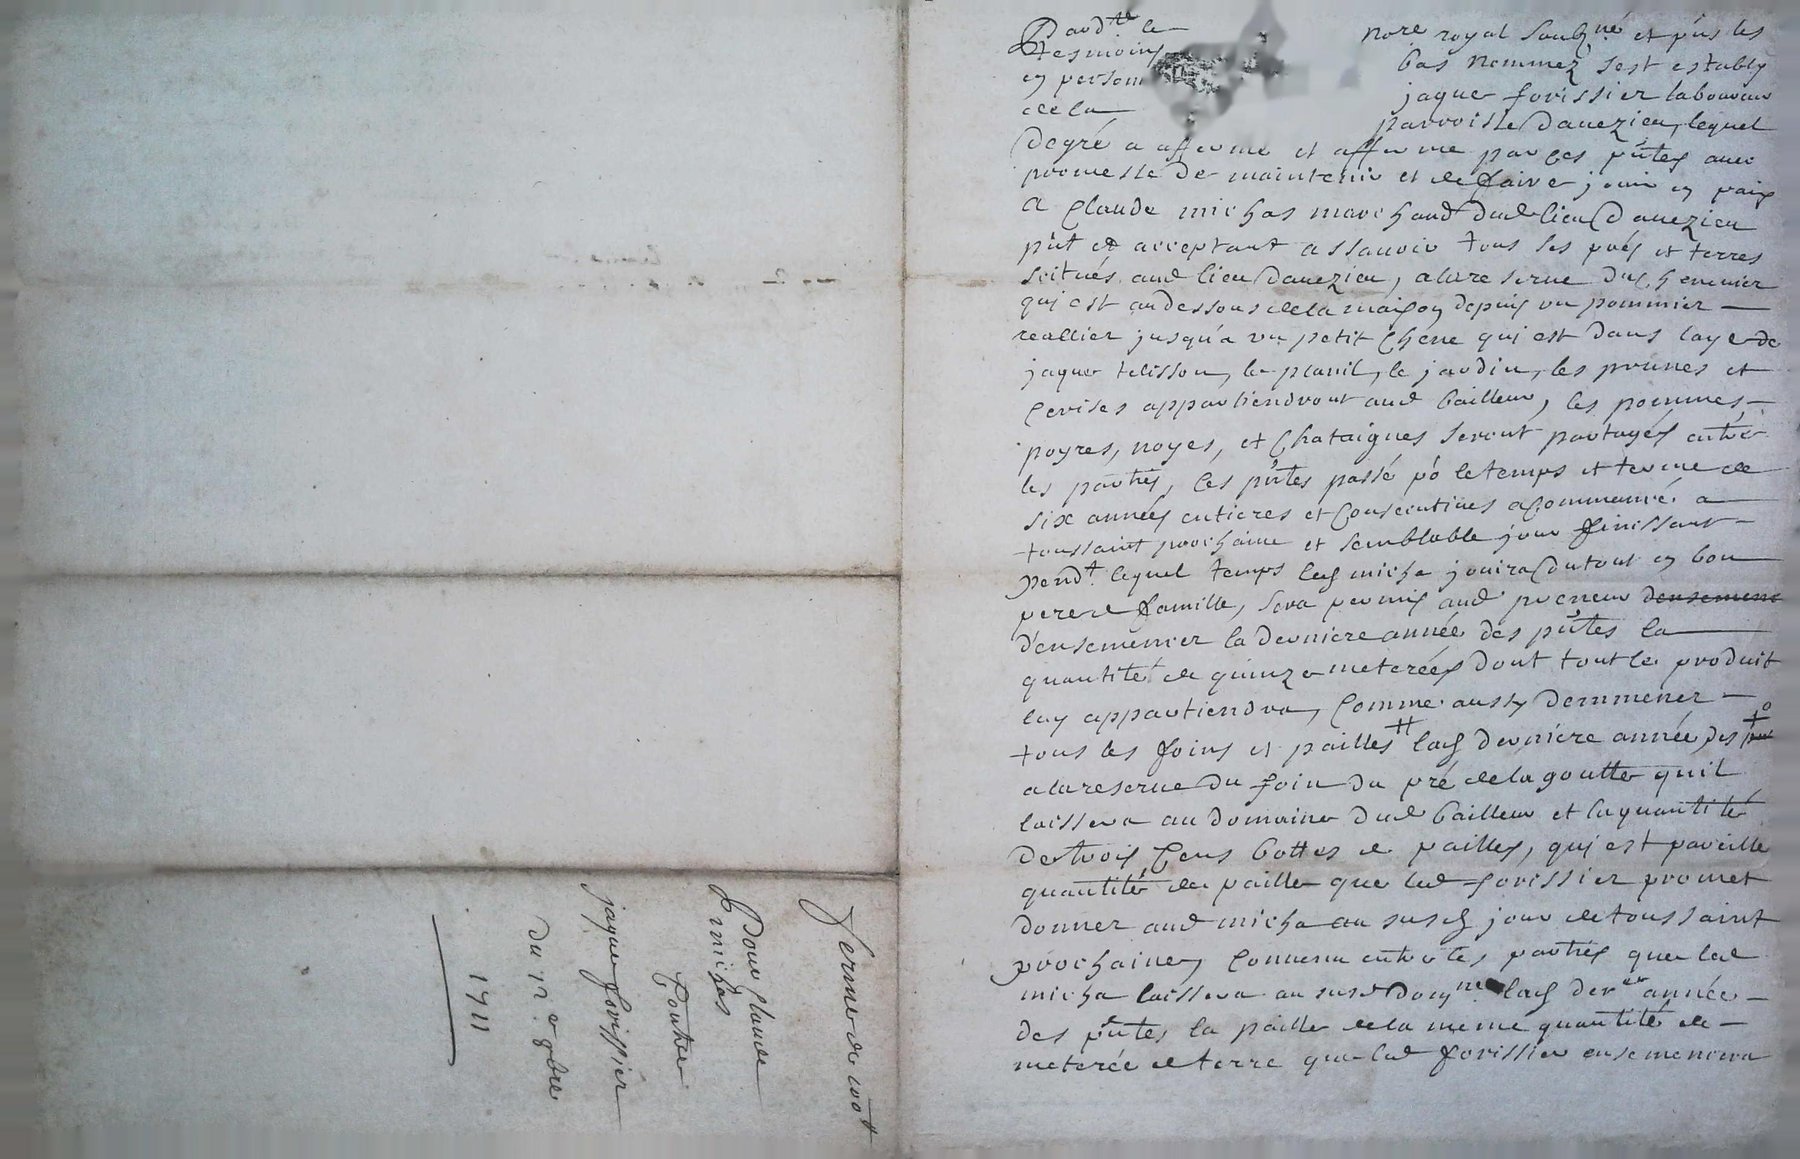 Pard.te le nore royal soubz.né et p'ns les
tesmoins bas nommez s'est estably
en person jaque forissier laboureur
de la parroisse d'auezieu, lequel
de gré a affermé et afferme par ces p'ntes auec
promesse de maintenir et de faire jouir en paix
a Claude michas marchand dud lieu d'auezieu
p'nt et acceptant assauoir tous ses prés et terres
scitués aud lieu d'auezieu, a la reserue du chenevier
qui est au dessous de la maison depuis un pommier
jusqu'a un petit chéne qui est dans la
jaque telisson, le jardin, les prunes et
cerises appartiendront aud bailleur, les pommes
poyres, noyes, et chataignes seront partagés entre
les parties, les p'ntes passé po le temps et terme de
six années entieres et consecutiues a commencé a
toussaint prochaine et semblable jour finissant
pend.t lequel temps led micha jouira du tout en bon
pere de famille, sera permis aud preneur densemenc
d'ensemencer la derniere année des p'ntes la
quantité de quinze meterées dont tout le produit
luy appartiendra, comme aussy d'emmener
tous les foins et pailles # lad derniere année des
a la reserue du foin du pré de la goutte qu'il
laissera au domaine dud bailleur et la quantité
de trois cens bottes de pailles, qui est pareille
quantité de paille que led forissier promet
donner aud micha au susd jour de toussaint
prochaine, conuenu entre les parties que led
micha laissera au susd dom.ne lad der.re année
des p'ntes la paille de la meme quantité de
meterée de terre que led forissier ensemencera
ferme de
Pour Claude
michas
Contre
jaque forissier
du 17.e 9bre
1711